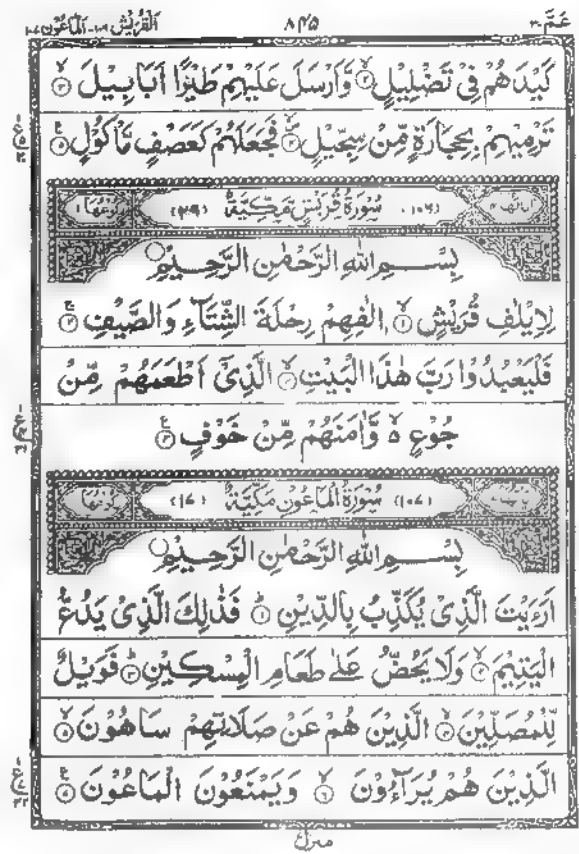 القُرَيش ١٠٦ - المَاعُون ١٠٧ ٨٤٥ عَمَّ ٣٠
كَيْدَهُمْ فِيْ تَضْلِيْلٍ ۙ﴿٢﴾ وَّاَرْسَلَ عَلَيْهِمْ طَيْرًا اَبَابِيْلَ ۙ﴿٣﴾
تَرْمِيْهِمْ بِحِجَارَةٍ مِّنْ سِجِّيْلٍ ۙ﴿٤﴾ فَجَعَلَهُمْ كَعَصْفٍ مَّاْكُوْلٍ ﴿٥﴾ ع
(١٠٦) سُوْرَةُ قُرَيْشٍ مَّكِّيَّةٌ (٢٩)
بِسْــمِ اللهِ الرَّحْمٰنِ الرَّحِــيْمِ
لِاِيْلٰفِ قُرَيْشٍ ۙ﴿١﴾ اٖلٰفِهِمْ رِحْلَةَ الشِّتَآءِ وَالصَّيْفِ ۚ﴿٢﴾
فَلْيَعْبُدُوْا رَبَّ هٰذَا الْبَيْتِ ۙ﴿٣﴾ الَّذِيْٓ اَطْعَمَهُمْ مِّنْ
جُوْعٍ ۙ٥ وَّاٰمَنَهُمْ مِّنْ خَوْفٍ ﴿٤﴾ ع
(١٠٧) سُوْرَةُ الْمَاعُوْنِ مَكِّيَّةٌ (١٧)
بِسْــمِ اللهِ الرَّحْمٰنِ الرَّحِــيْمِ
اَرَءَيْتَ الَّذِيْ يُكَذِّبُ بِالدِّيْنِ ؕ﴿١﴾ فَذٰلِكَ الَّذِيْ يَدُعُّ
الْيَتِيْمَ ۙ﴿٢﴾ وَلَا يَحُضُّ عَلٰى طَعَامِ الْمِسْكِيْنِ ؕ﴿٣﴾ فَوَيْلٌ
لِّلْمُصَلِّيْنَ ۙ﴿٤﴾ الَّذِيْنَ هُمْ عَنْ صَلَاتِهِمْ سَاهُوْنَ ۙ﴿٥﴾
الَّذِيْنَ هُمْ يُرَآءُوْنَ ۙ﴿٦﴾ وَيَمْنَعُوْنَ الْمَاعُوْنَ ﴿٧﴾ ع